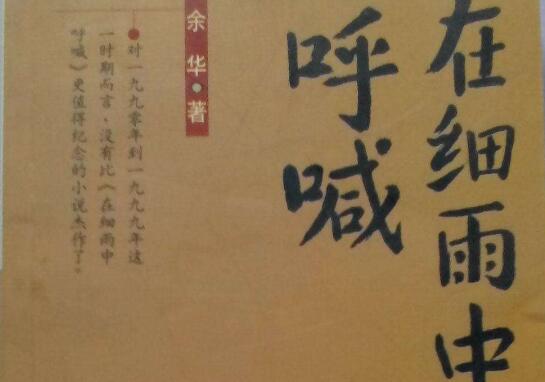 在细雨中
呼喊
余华·著
对一九九零年到一九九九年这
一时期而言，没有比《在细雨中
呼喊》更值得纪念的小说杰作了。